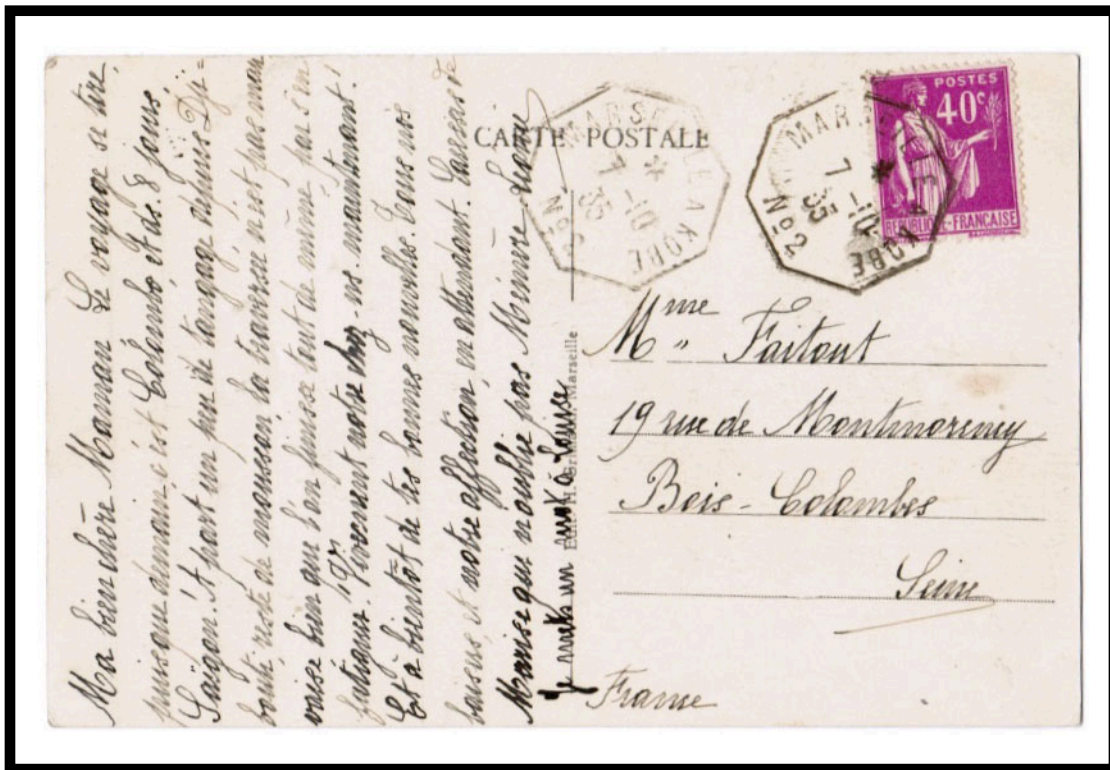 CARTE POSTALE
POSTES
40c
REPUBLIQUE-FRANCAISE
MARSEILLE A KOBE
7 -10
35
No 2
MARSEILLE A KOBE
7 -10
35
No 2
Mme Faitout
19 rue de Montmorency
Bois-Colombes
Seine
France
Marseille
Ma bien chère Maman Le voyage se tire,
puisque demain c'est Colombo et ds. 8 jours
Saïgon. A part un peu de tangage depuis Dji-
bouti, reste de mousson, la traversée n'est pas mau
vaise bien que l'on finisse tout de même par s'en
fatiguer. Vivement notre chez-ns. maintenant!
Et à bientôt de tes bonnes nouvelles. Tous nos
baisers, et notre affection, en attendant. Caresses de
qui n'oublie pas Mémère
Je mets un mot à Louise